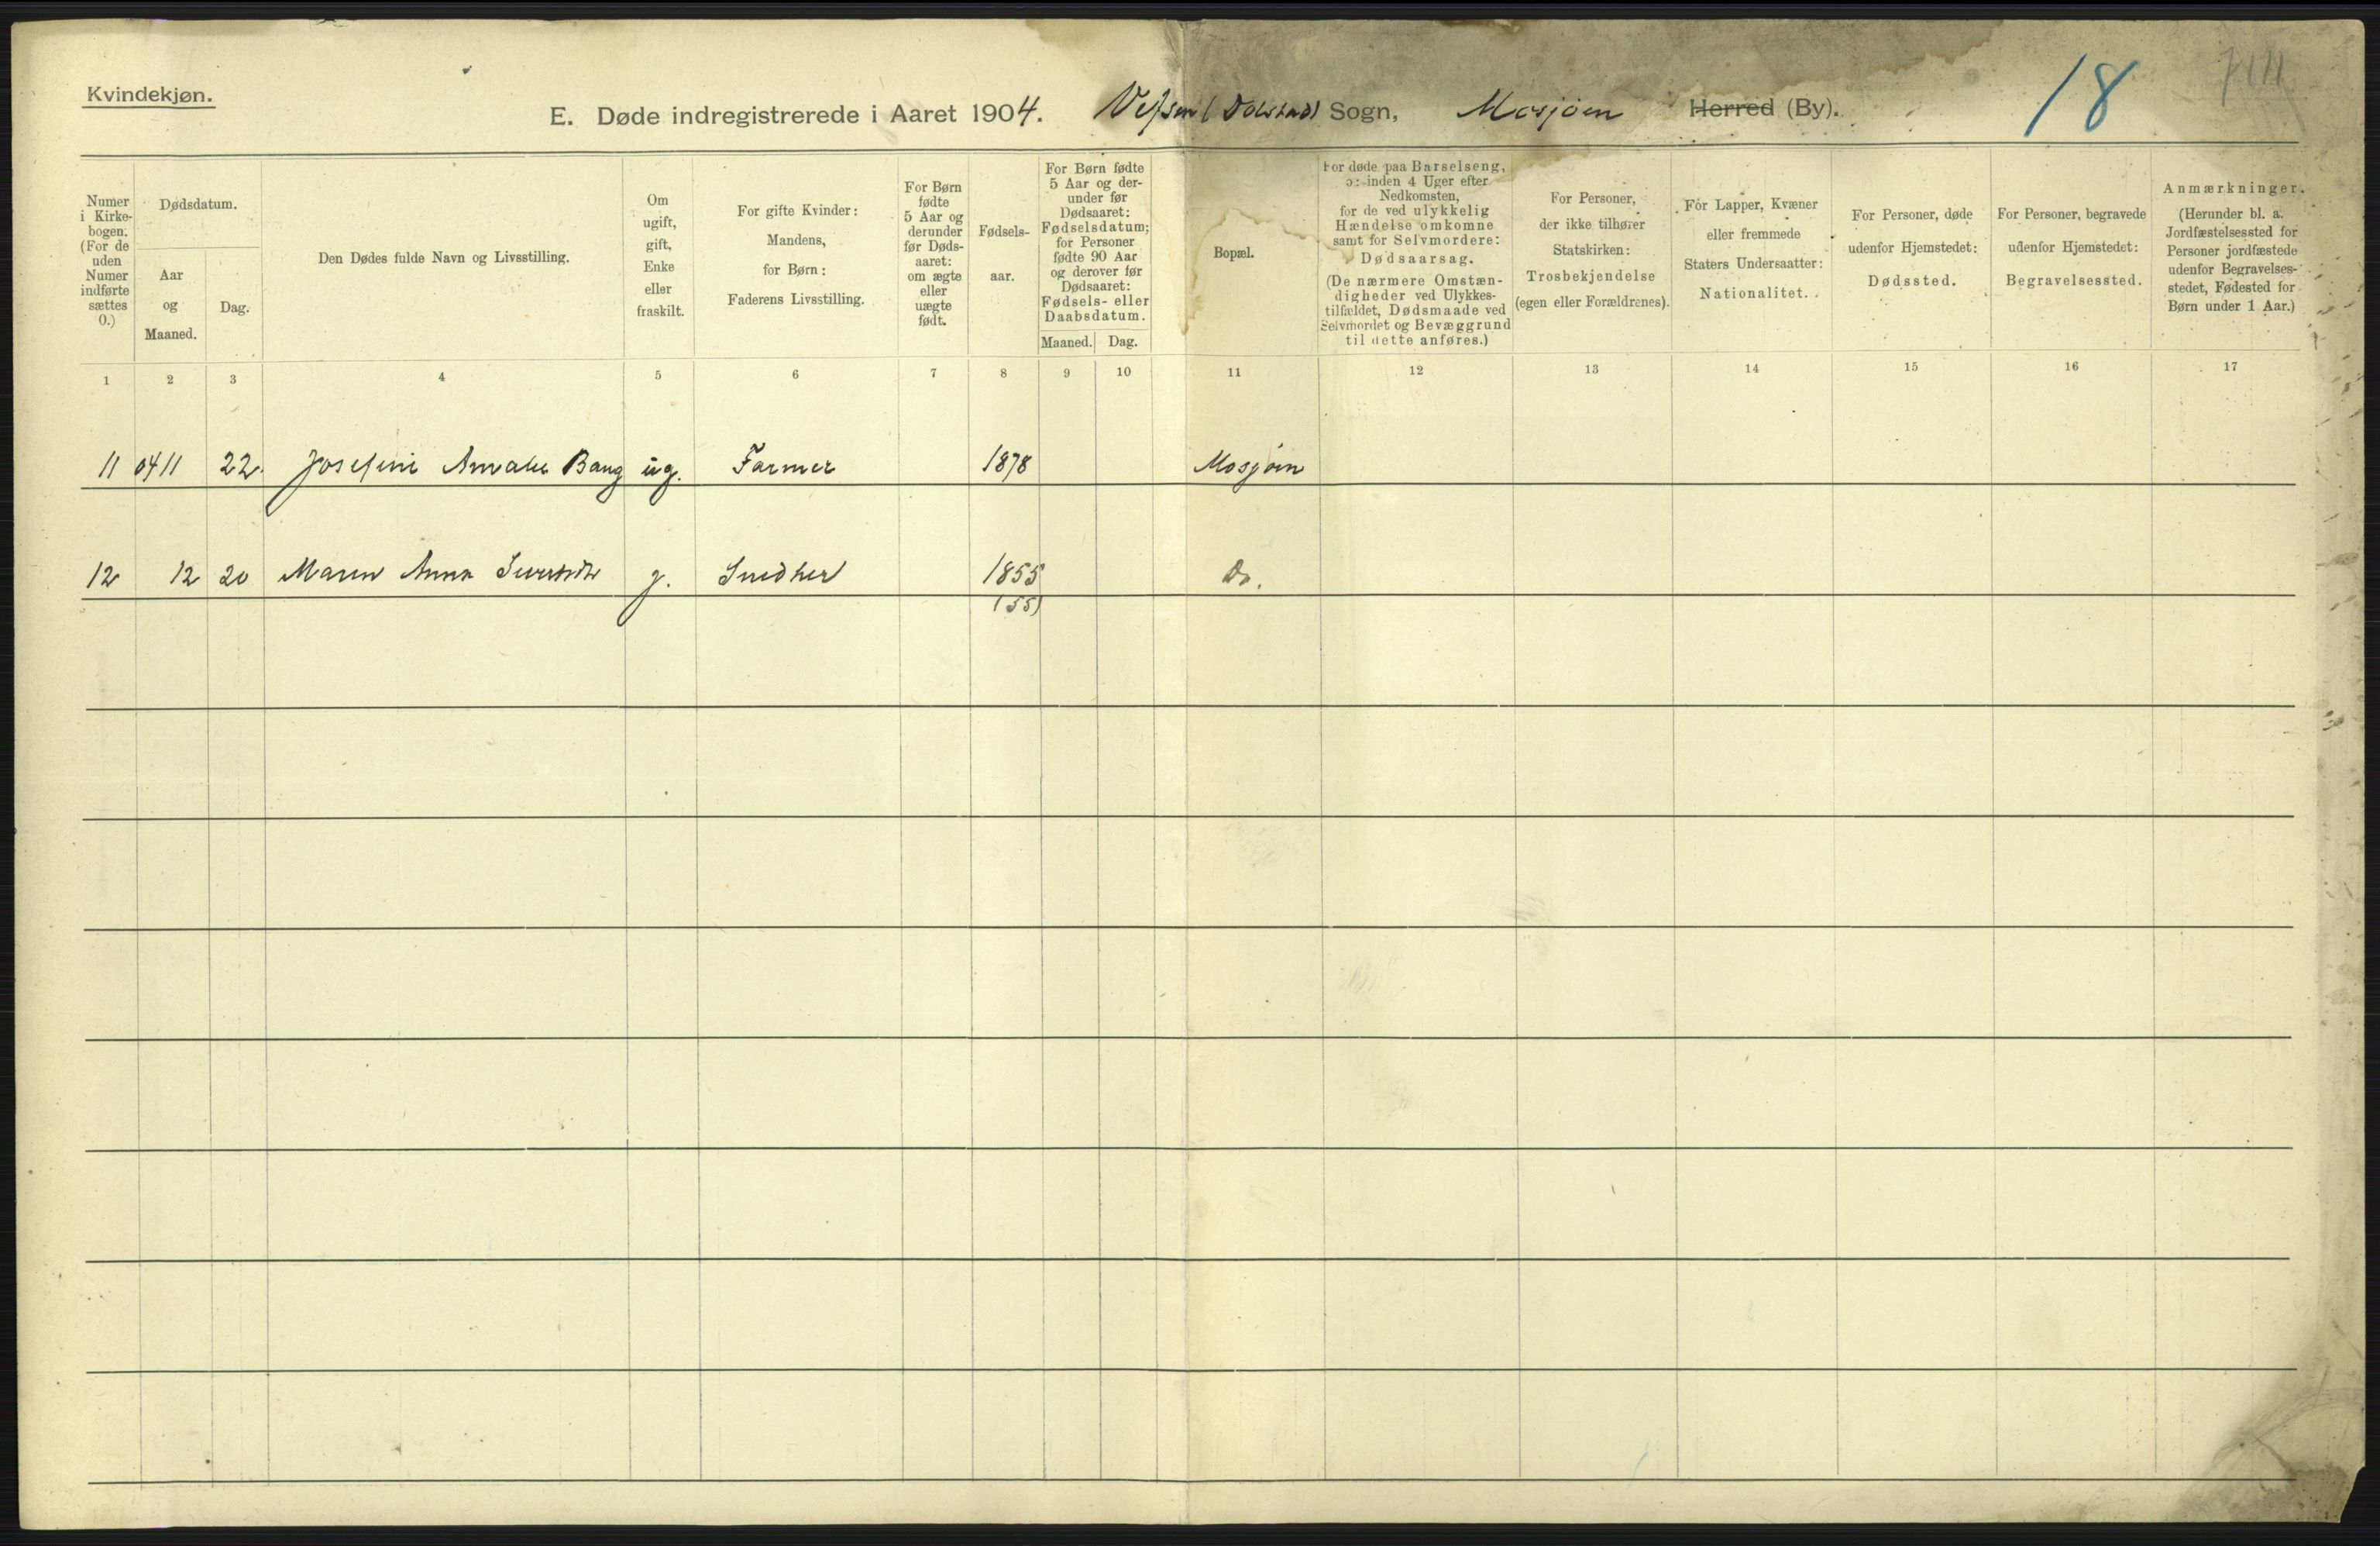 Kvindekjøn.
E. Døde indregistrerede i Aaret 1904. Vefsen (Dolstad) Sogn, Mosjøen Herred (By). 18
Numer i Kirkebogen. (For de uden Numer indførte sættes 0.)
Dødsdatum.
Aar og Maaned.
Dag.
Den Dødes fulde Navn og Livsstilling.
Om ugift, gift, Enke eller fraskilt.
For gifte Kvinder: Mandens, for Børn: Faderens Livsstilling.
For Børn fødte 5 Aar og derunder før Dødsaaret: om ægte eller uægte født.
Fødselsaar.
For Børn fødte 5 Aar og derunder før Dødsaaret: Fødselsdatum; for Personer fødte 90 Aar og derover før Dødsaaret: Fødsels- eller Daabsdatum.
Maaned. Dag.
Bopæl.
For døde paa Barselseng, ɔ: inden 4 Uger efter Nedkomsten, for de ved ulykkelig Hændelse omkomne samt for Selvmordere: Dødsaarsag. (De nærmere Omstændigheder ved Ulykkestilfældet, Dødsmaade ved Selvmordet og Bevæggrund til dette anføres.)
For Personer, der ikke tilhører Statskirken: Trosbekjendelse (egen eller Forældrenes).
For Lapper, Kvæner eller fremmede Staters Undersaatter: Nationalitet.
For Personer, døde udenfor Hjemstedet: Dødssted.
For Personer, begravede udenfor Hjemstedet: Begravelsessted.
Anmærkninger. (Herunder bl. a. Jordfæstelsessted for Personer jordfæstede udenfor Begravelsesstedet, Fødested for Børn under 1 Aar.)
1 2 3 4 5 6 7 8 9 10 11 12 13 14 15 16 17
11 04 11 22. Josefine Amalie Bang ug. Farmer 1878 Mosjøen
12 12 20 Maren Anna g. Snedker 1855 Do.
(55)